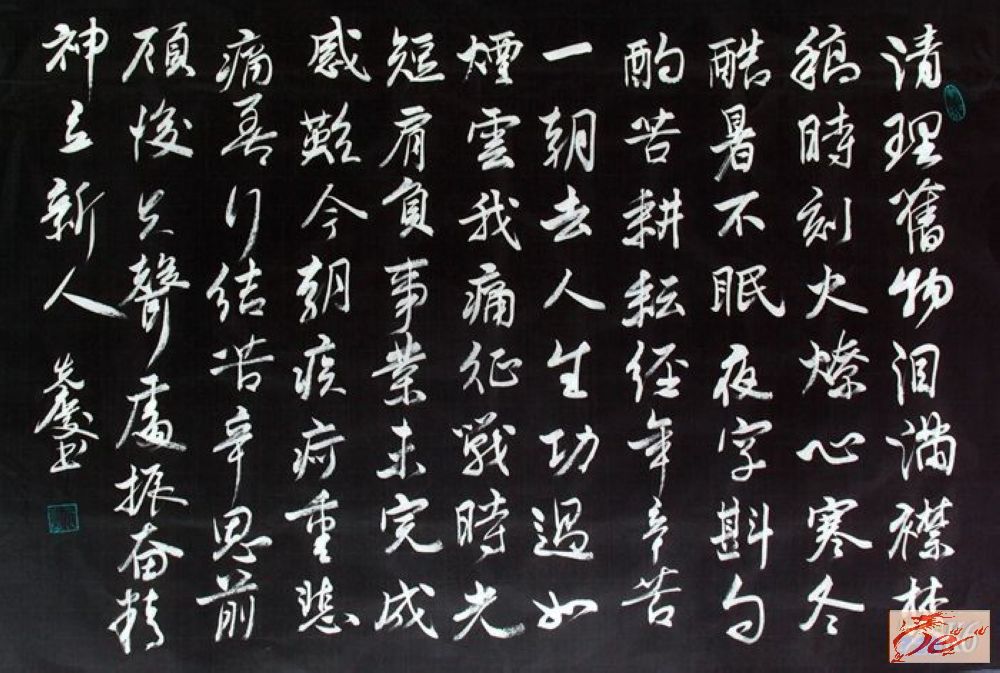 清理舊物泪满襟焚
稿時刻火燎心寒冬
酷暑不眠夜字斟句
酌苦耕耘经年辛苦
一朝去人生功過如
煙雲我痛征戰時光
短肩負事業未完成
感歎今朝疾病重悲
痛善行结苦辛思前
顾後无聲處振奋精
神立新人
先慶书